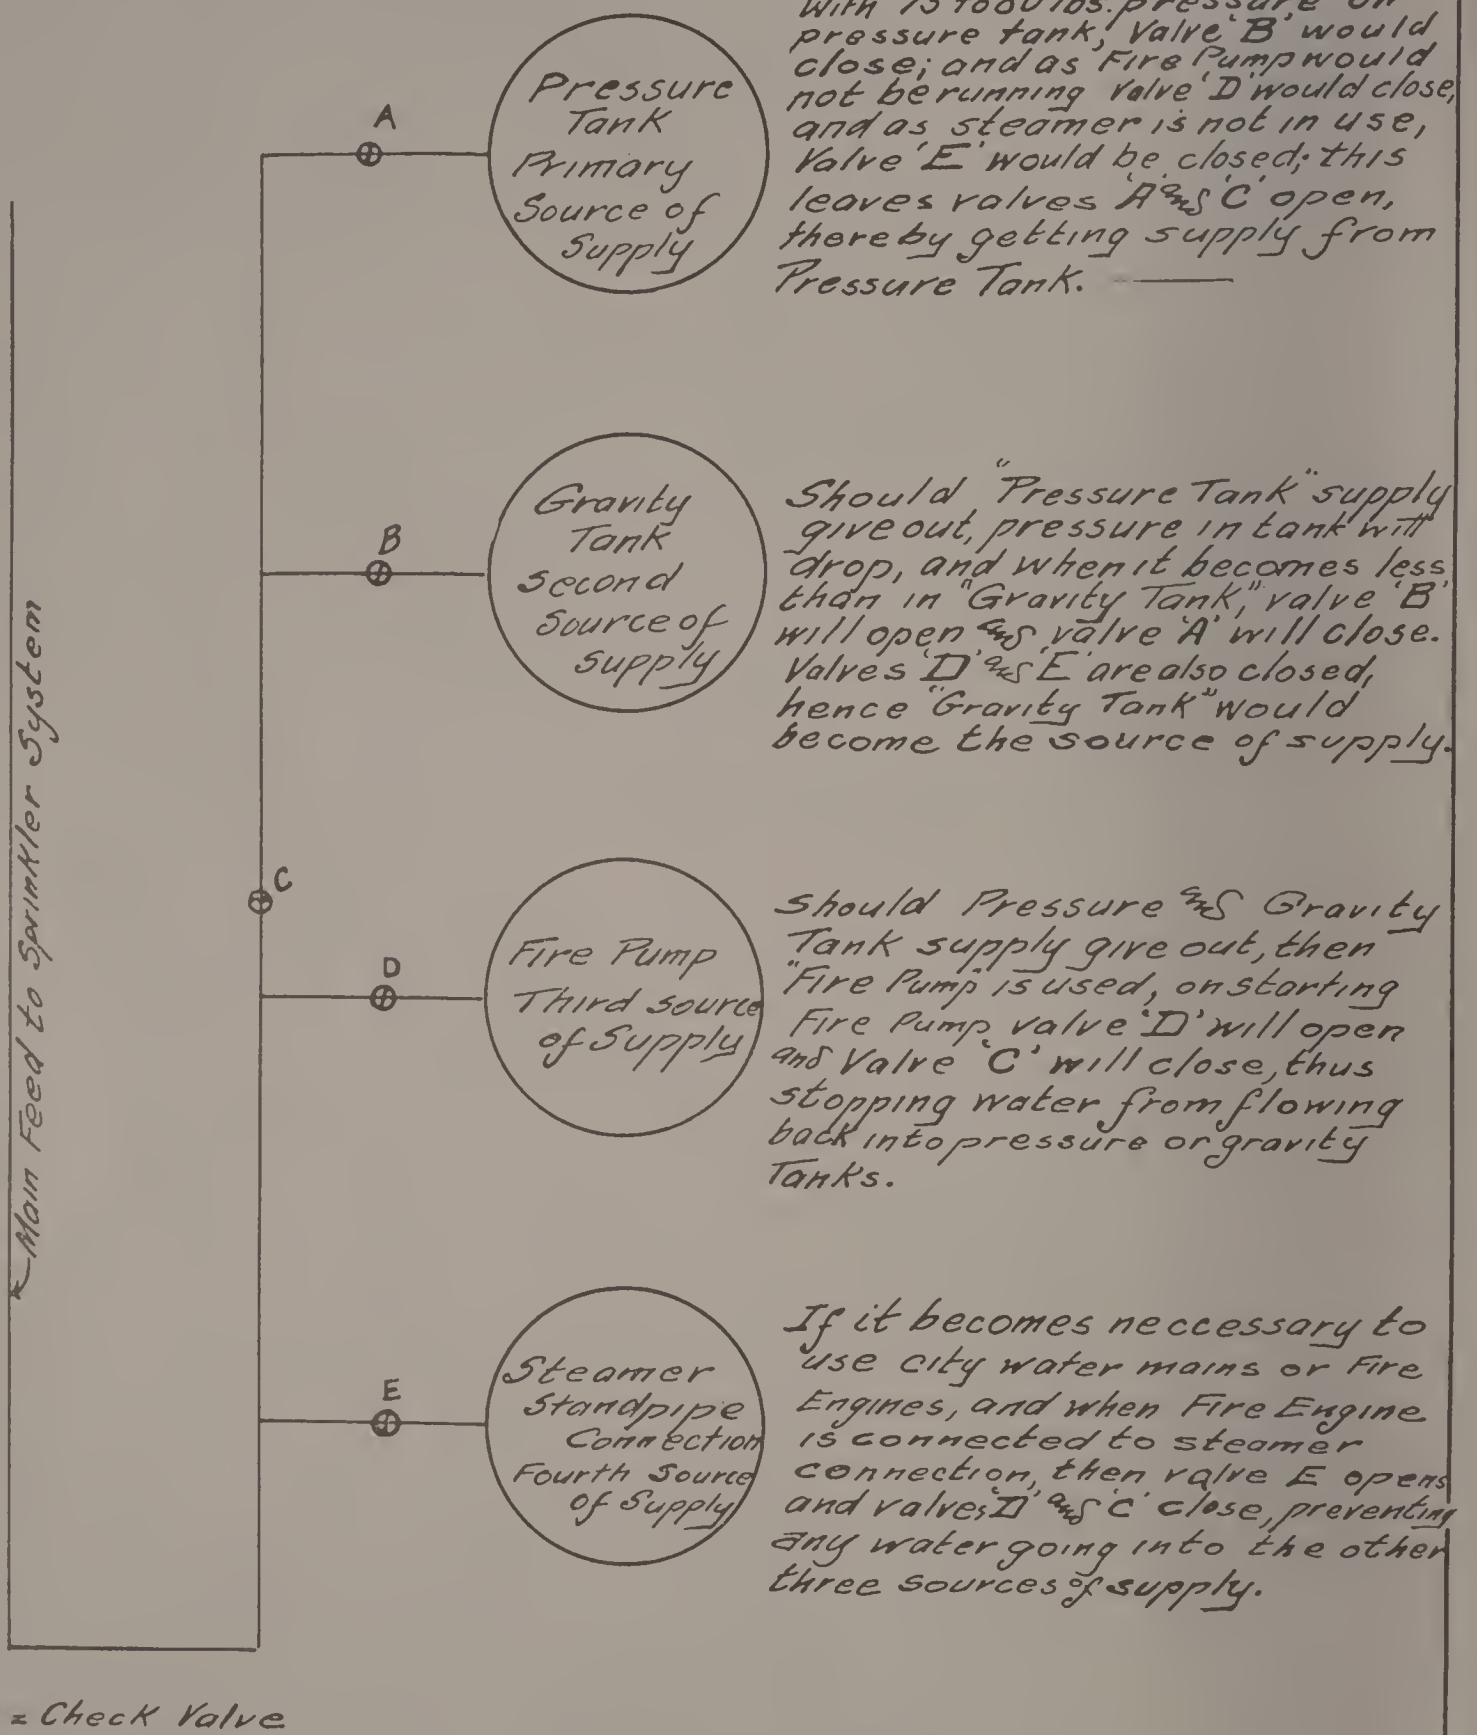 With 75 to 80 lbs. pressure on
pressure tank, Valve 'B' would
close; and as Fire Pump would
not be running Valve 'D' would close,
and as steamer is not in use,
Valve 'E' would be closed; this
leaves valves 'A' and 'C' open,
thereby getting supply from
Pressure Tank.
A
Pressure
Tank
Primary
Source of
Supply
B
Gravity
Tank
Second
Source of
Supply
Should "Pressure Tank" supply
give out, pressure in tank will
drop, and when it becomes less
than in "Gravity Tank," valve 'B'
will open and valve 'A' will close.
Valves 'D' and 'E' are also closed,
hence "Gravity Tank" would
become the source of supply.
Main Feed to Sprinkler System
C
D
Fire Pump
Third source
of Supply
Should Pressure and Gravity
Tank supply give out, then
"Fire Pump" is used, on starting
Fire Pump valve 'D' will open
and Valve 'C' will close, thus
stopping water from flowing
back into pressure or gravity
Tanks.
E
Steamer
Standpipe
Connection
Fourth Source
of Supply
If it becomes neccessary to
use city water mains or Fire
Engines, and when Fire Engine
is connected to steamer
connection, then valve E opens
and valves 'D' and 'C' close, preventing
any water going into the other
three sources of supply.
= Check Valve